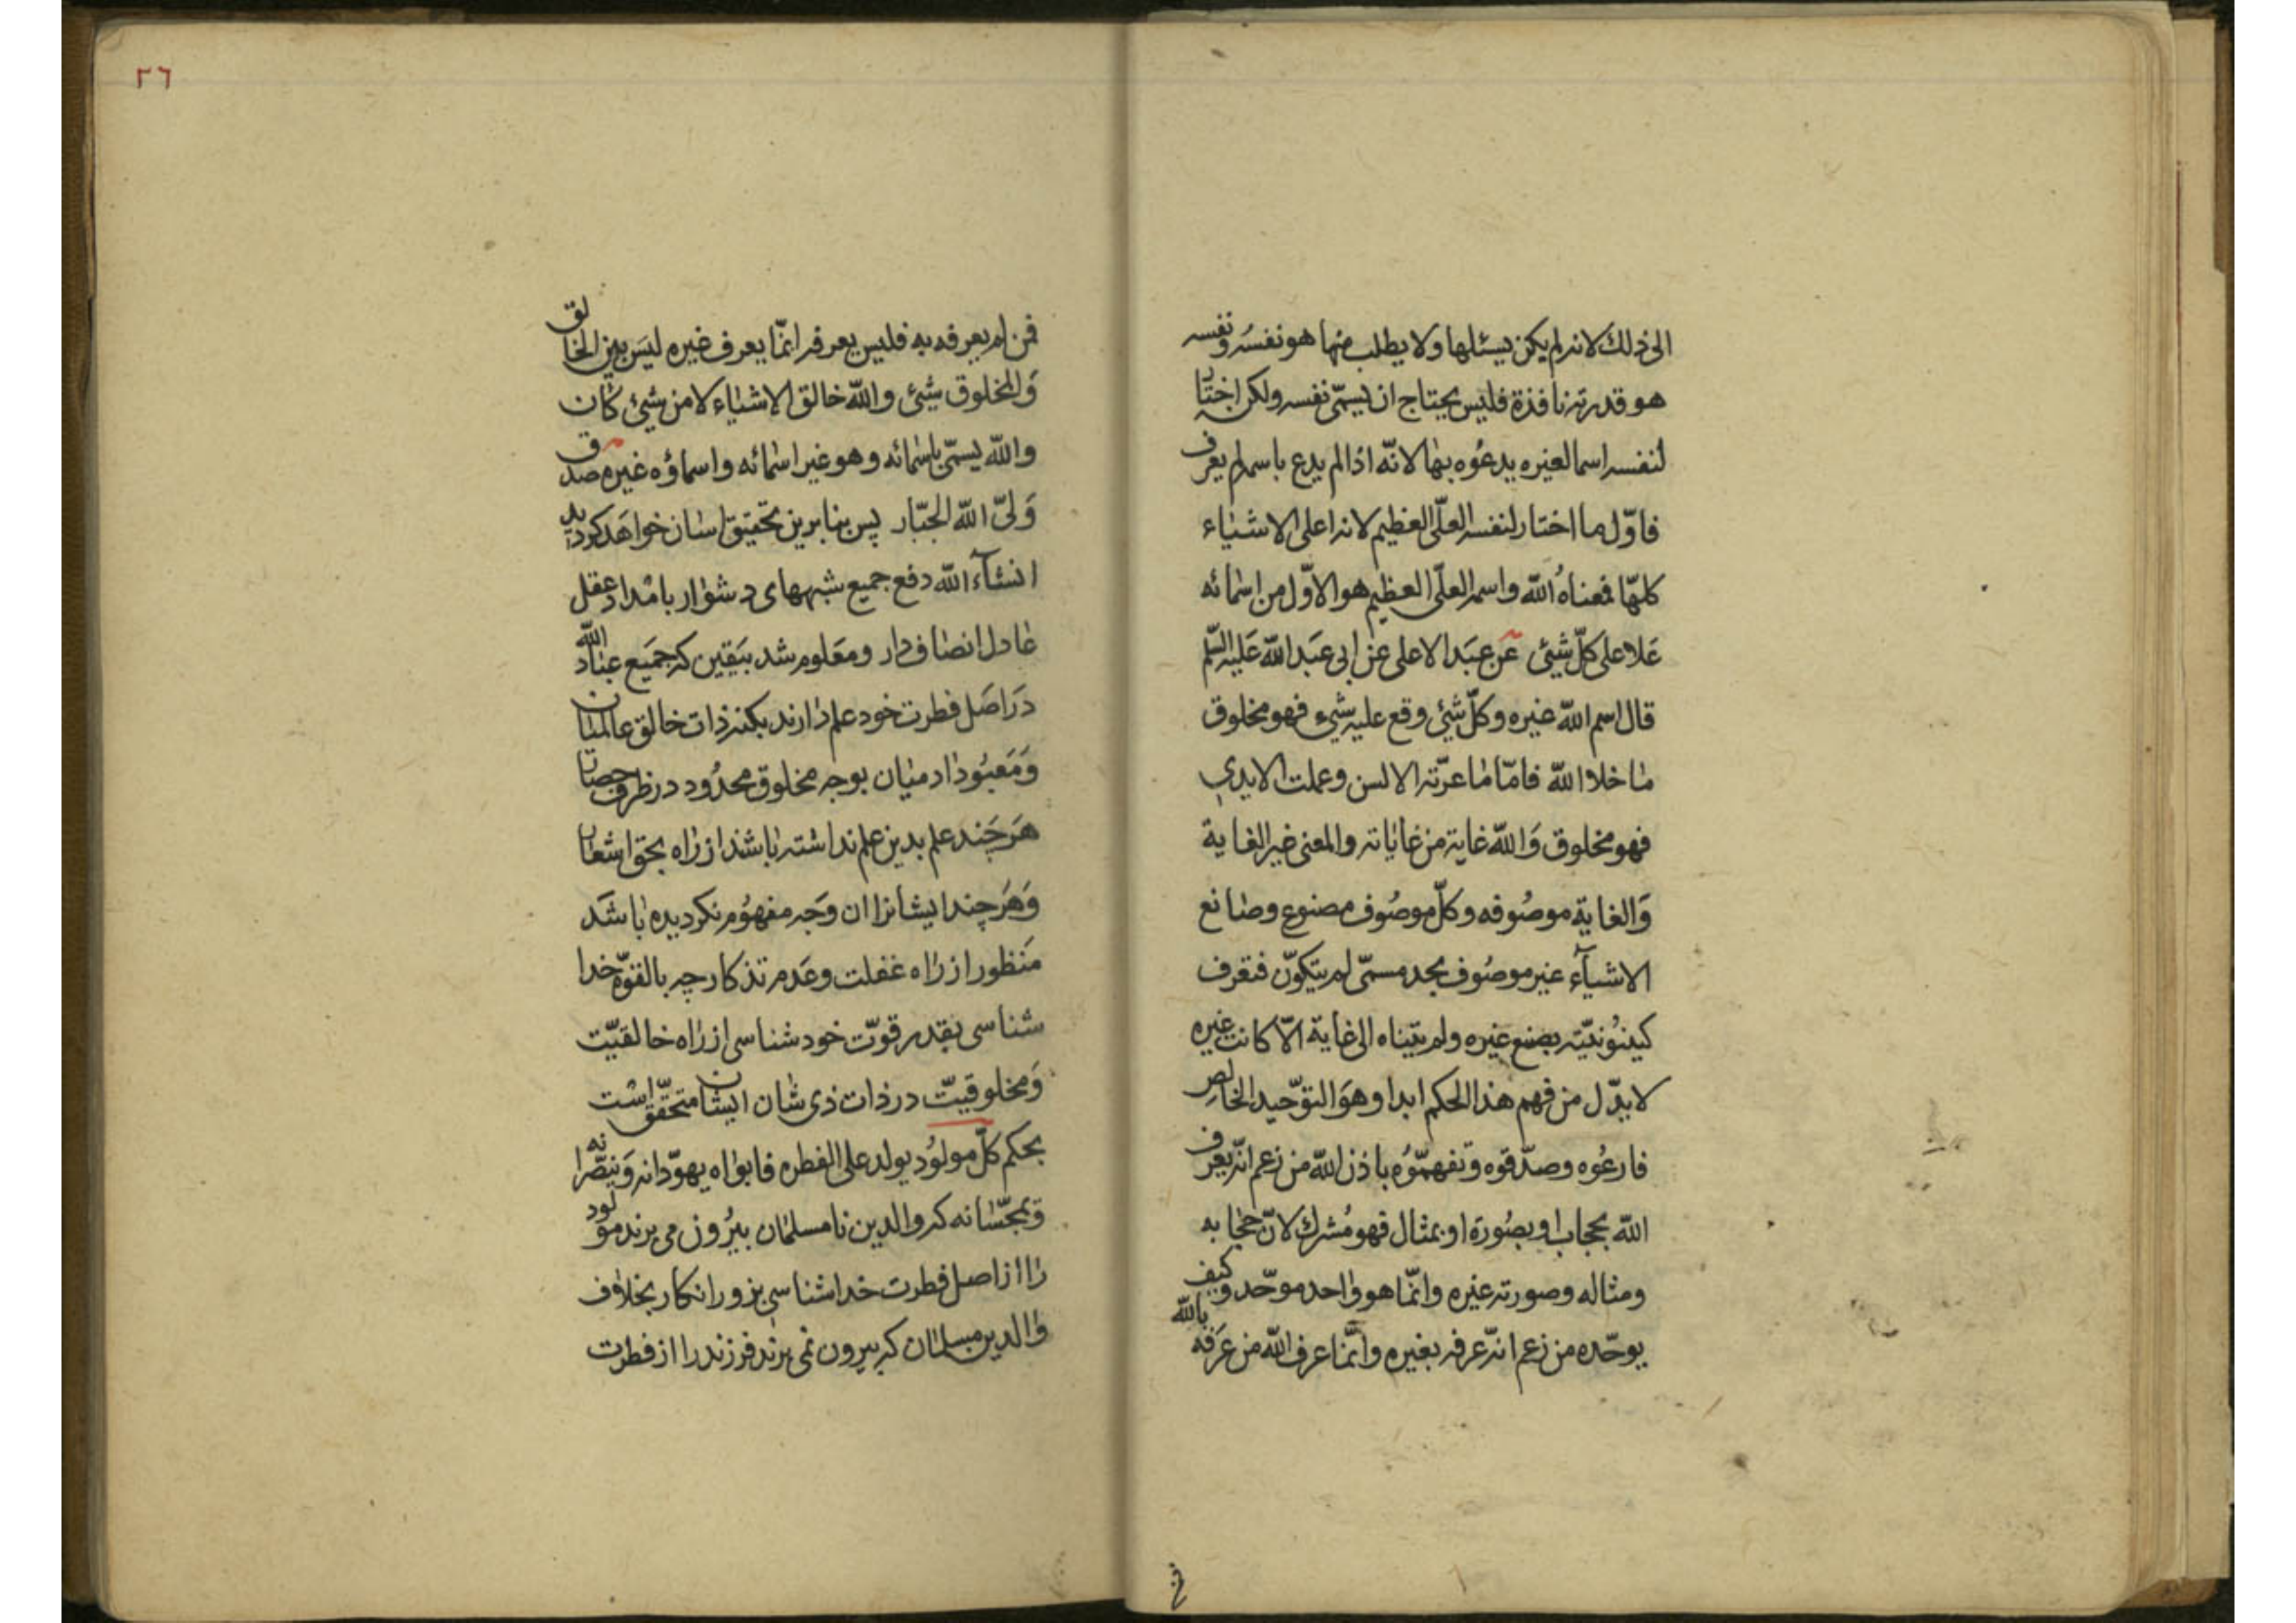 الی ذلك لانه لم یکن یسئلها ولا یطلب منها هو نفسُه ونفسه
هو قدرته نافذة فلیس یحتاج ان یسمّی نفسه ولکن اختار
لنفسه اسما لغیره یدعُوه بها لانّه اذا لم یدع باسمه لم یعرف
فاوّل ما اختار لنفسه العلّی العظیم لانه اعلی الاشیاء
کلهّا فمعناهُ الله واسمه العلّی العظیم هو الاوّل من اسمائه
عَلا علی کلّ شیئ عَن عبَد الاعلی عَن ابی عبَد الله عَلیه السّلم
قال اسم الله غیره وکلّ شیئ وقع علیه شیء فهو مخلوق
ما خلا الله فامّا ما عبّرته الالسن وعملت الایدي
فهو مخلوق وَالله غایة من غایاته والمعنی غیر الغایة
وَالغایة موصُوفه وکلّ موصُوف مصنوع وصانع
الاشیآء غیر موصُوف بحد مسمّی لم یتکوّن فتعرف
کینُونیّته بصنع غیره ولم یتناه الی غایة الّا کانت غیره
لا یذّل من فهم هذا الحکم ابدا وهوَ التوّحید الخالص
فارعُوه وصدّقوه وتفهمّوُه باذن الله من زعم انّه یعرف
الله بحجاب او بصُورة او بمثال فهو مُشرك لانّ حجابه
ومثاله وصورته غیره وانّما هو واحد موحّد وکیف
یوحّده من زعم انّه عرفه بغیره وانّما عرف الله من عَرَفه بالله
فمن
٢٦
فمن لم یعرفه به فلیس یعرفه انّما یعرف غیره لیسَ بین الخالق
وَالمخلوق شیئ والله خالق الاشیاء لا من شیئ کان
والله یسمّی باسمائه وهو غیر اسمائه واسماؤه غیره صدق
وَلیّ الله الجبّار پس بنابرین تحقیق اسان خواهَد کردید
انشآء الله دفع جمیع شبههای دشوار بامداد عقل
عادل انصاف دار ومعَلوم شد بیَقین که جمَیع عباد الله
دَر اصَل فطرت خود علم دارند بکنه ذات خالق عالمیان
وَمَعبُود ادمیان بوجه مخلوق محدُود در ظرف حصار
هَرچَند علم بدین علم نداشته باشند از راه بحق اشعار
وَهَرچند ایشانرا ان وَجه مفهُوم نکردیده باشَد
مَنظور از راه غفلت وعَدم تذکار چه بالقوّه خدا
شناسی بقدر قوّت خود شناسی از راه خالقیّت
وَمخلوقیّت در ذات ذی شان ایشان متحقّق است
بحکم کلّ مولوُد یولد علی الفطره فابواه یهوّدانه وَینصّرانه
وَیمجّسانه که والدین نامسلمان بیرُون می برند مولود
را از اصل فطرت خداشناسی بزور انکار بخلاف
والدین مسلمان که بیرون نمی برند فرزند را از فطرت